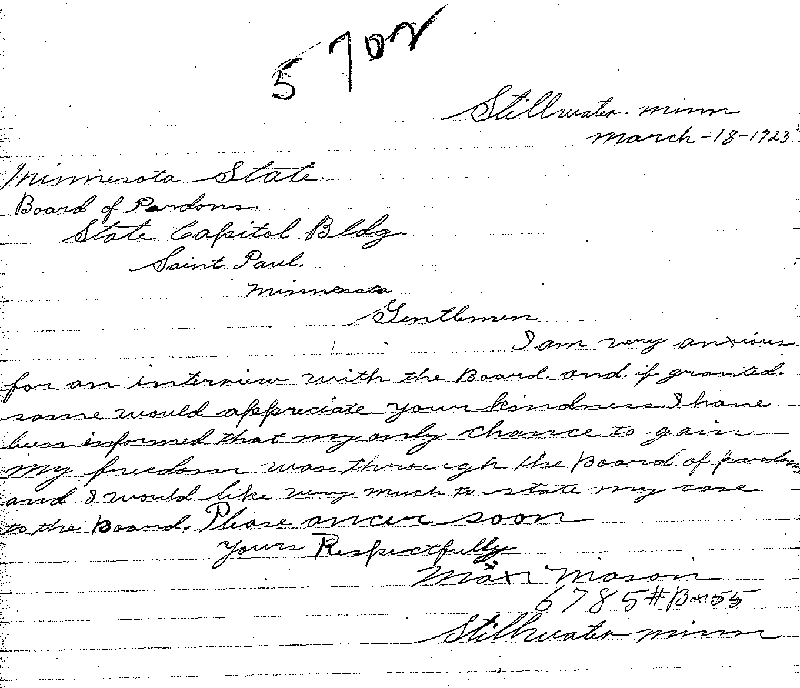 5702
Stillwater. minn
March-18-1923
Minnesota State
Board of Pardons.
State Capitol Bldg
Saint Paul.
Minnesota
Gentlemen
I am very anxious
for an interview with the Board. and. if granted.
same would appreciate your kindness I have
been informed that my only chance to gain
my freedom was through the Board of pardons
and I would like very much to state my case
to the Board. Please ancer soon
yours Respectfully
Max Mason
6785# Box 55
Stillwater minn